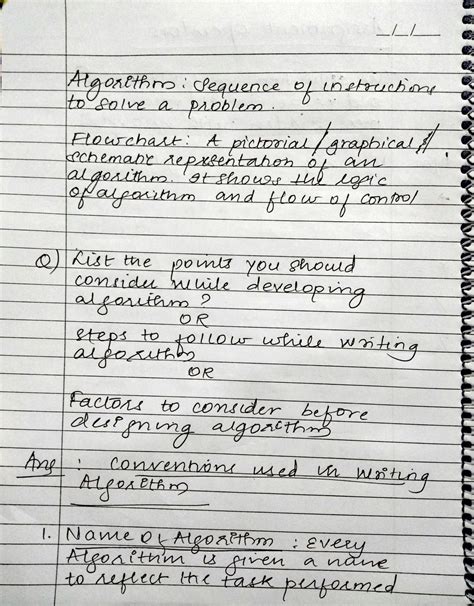 _/_/_
Algorithm : Sequence of instructions
to solve a problem.
Flowchart : A pictorial / graphical /
schematic representation of an
algorithm. It shows the logic
of algorithm and flow of control
Q) List the points you should
consider while developing
algorithm ?
OR
steps to follow while writing
algorithm
OR
Factors to consider before
designing algorithm
Ans : Conventions used in writing
Algorithm
1. Name of Algorithm : Every
Algorithm is given a name
to reflect the task performed